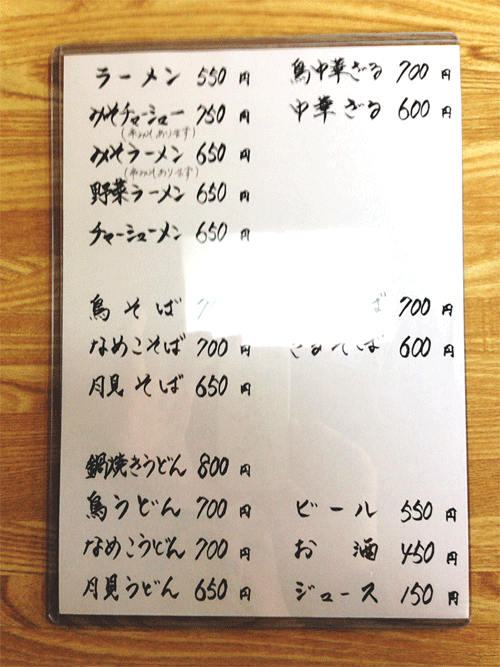 ラーメン 550円
みそチャーシュー 750円
(辛みそあります)
みそラーメン 650円
(辛みそあります)
野菜ラーメン 650円
チャーシューメン 650円
鳥そば
なめこそば 700円
月見そば 650円
鍋焼きうどん 800円
鳥うどん 700円
なめこうどん 700円
月見うどん 650円
鳥中華ざる 700円
中華ざる 600円
ば 700円
ざるそば 600円
ビール 550円
お酒 450円
ジュース 150円